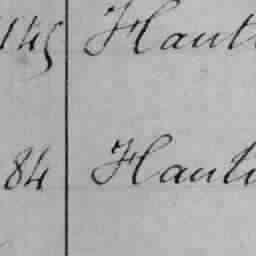 145 Haut
84 Hauti